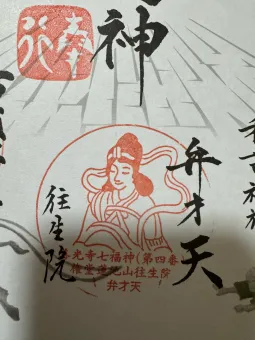 奉行
神
弁才天
往生院
光寺七福神(第四番
権堂蓮池山往生院
弁才天